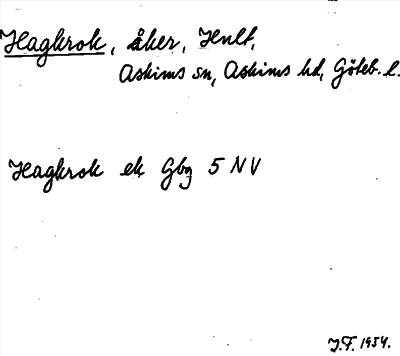 Hagkrok, åker, Hult,
Askims sn, Askims hd, Göteb. l.
Hagkrok ek Gbg 5 NV
J.F. 1954.